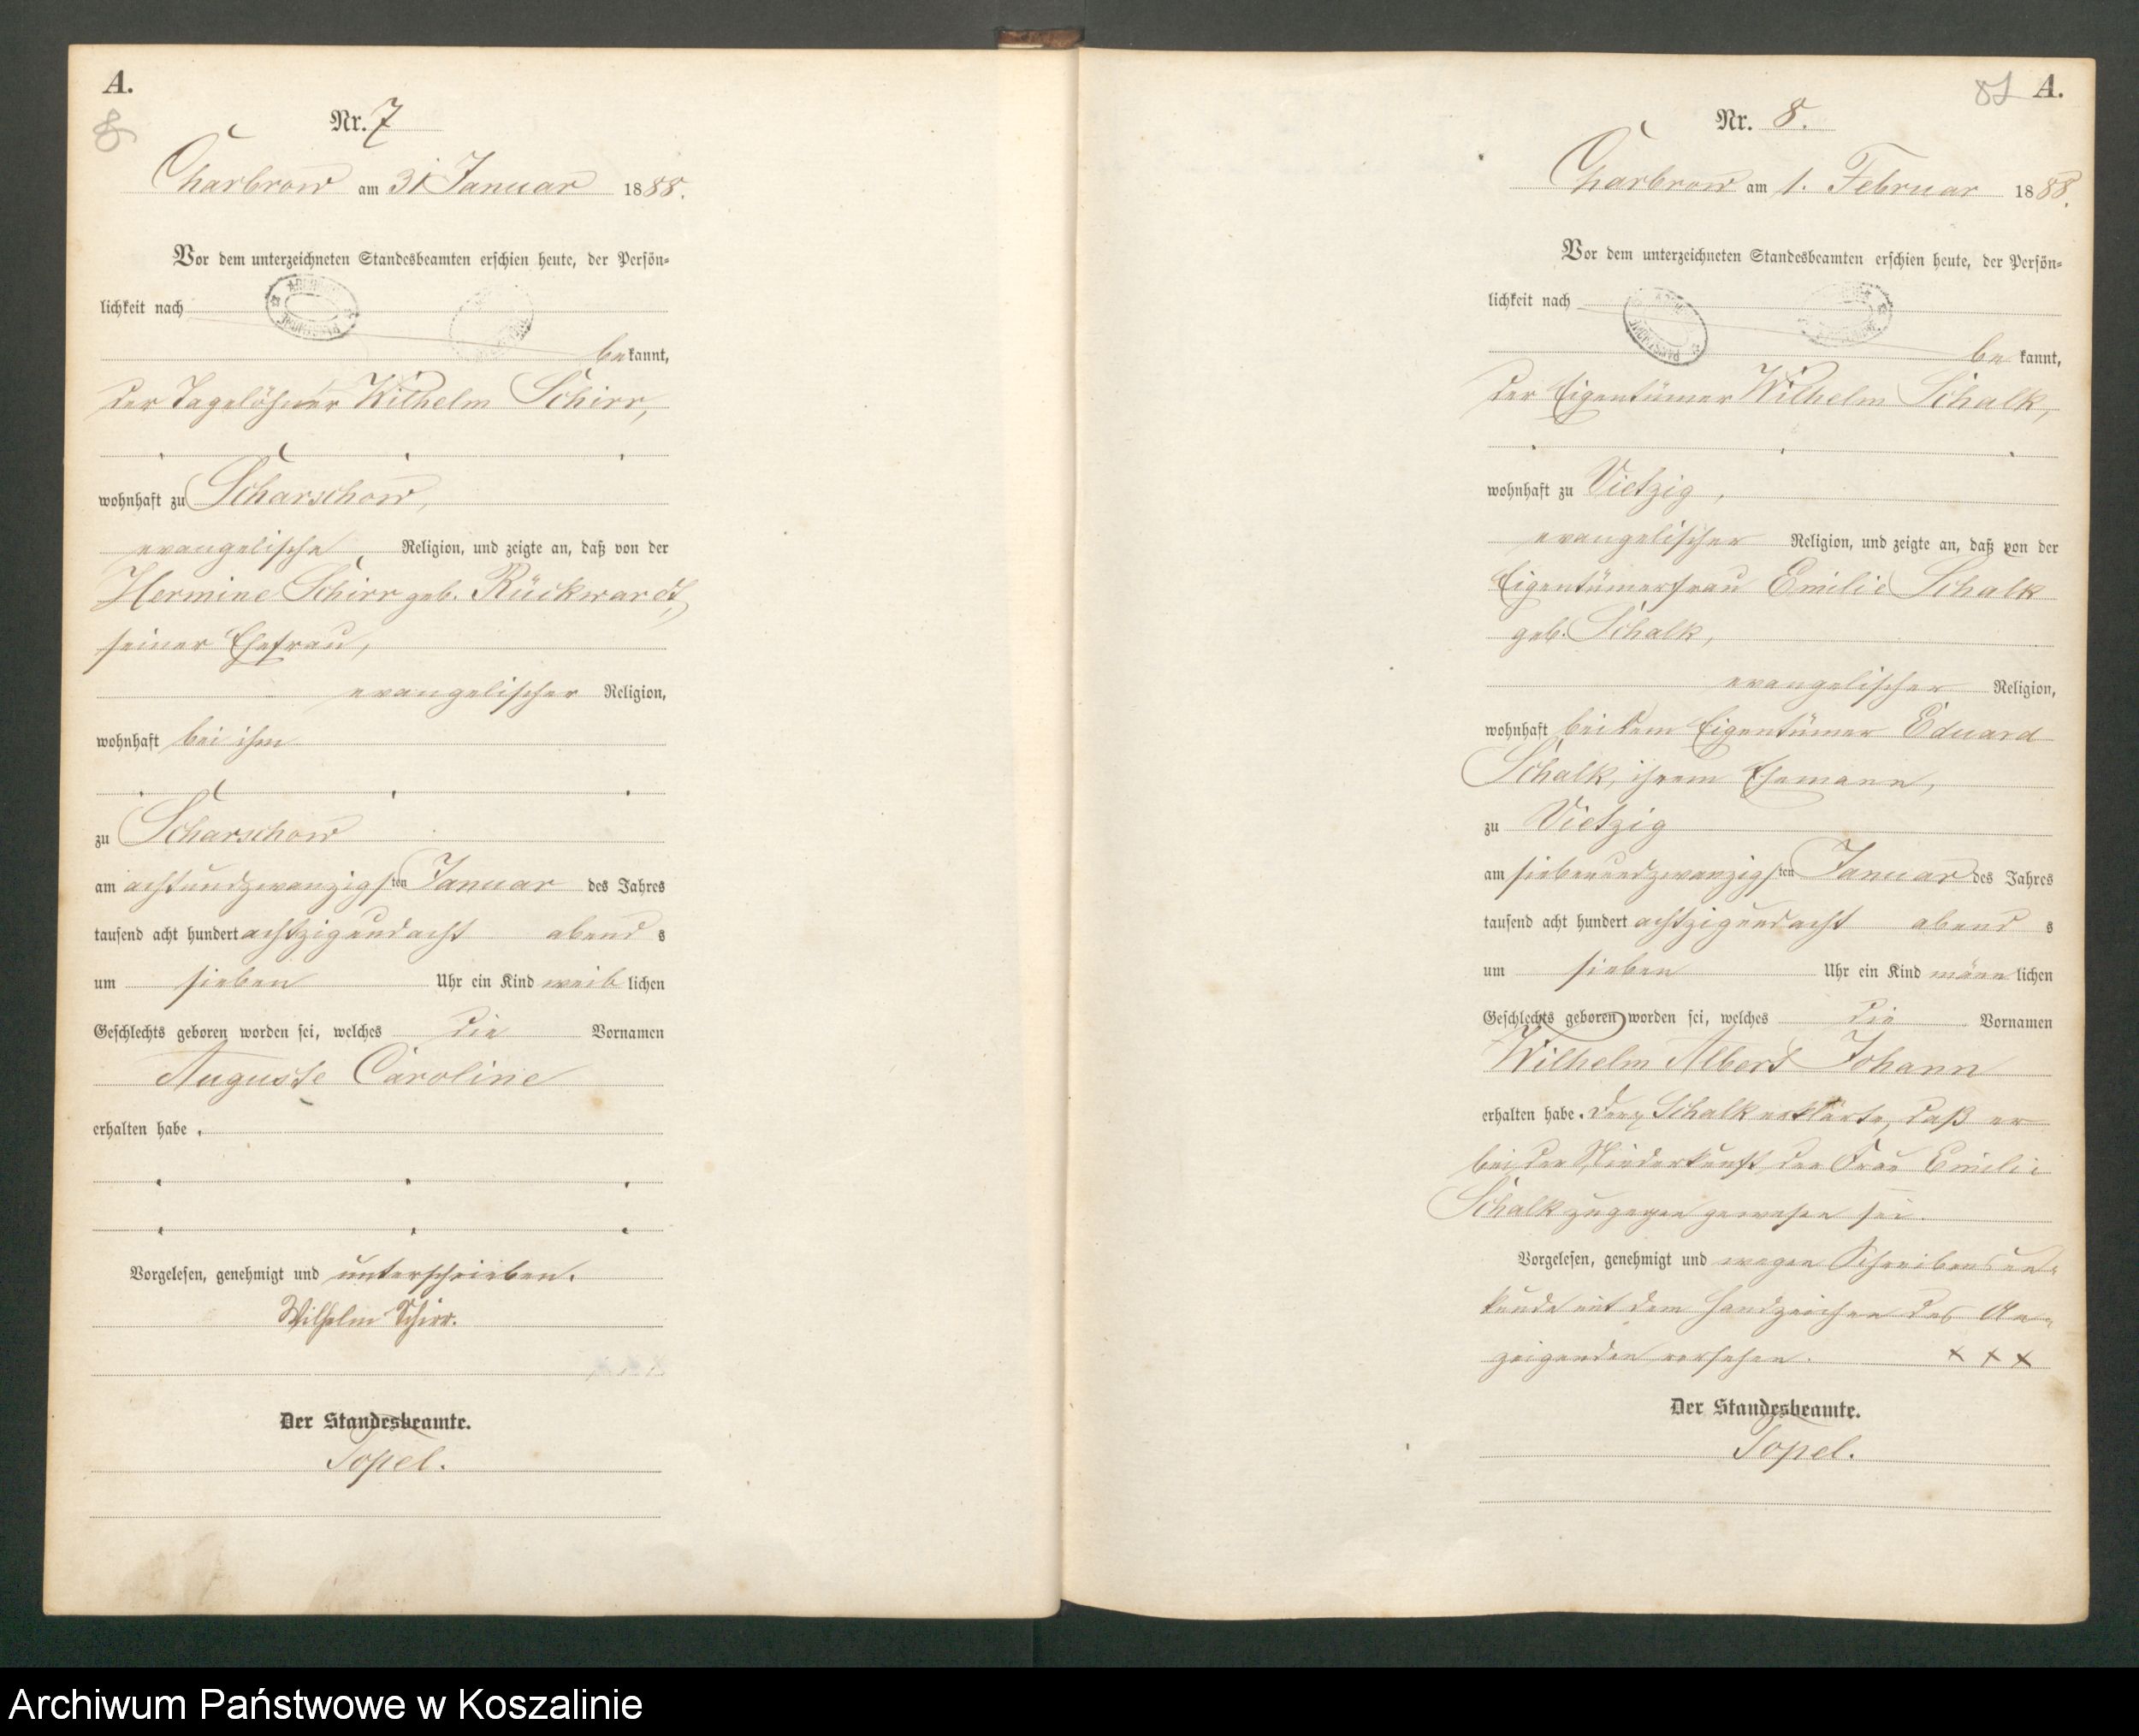 A.
8
Nr. 7
Charbrow am 31 Januar 1888.
Vor dem unterzeichneten Standesbeamten erschien heute, der Persön-
lichkeit nach
bekannt,
der Tagelöhner Wilhelm Schirr,
wohnhaft zu Scharschow,
evangelische Religion, und zeigte an, daß von der
Hermine Schirr geb. Rückwardt,
seiner Ehefrau,
evangelischer Religion,
wohnhaft bei ihm
zu Scharschow
am achtundzwanzigsten Januar des Jahres
tausend acht hundert achtzigundacht abends
um sieben Uhr ein Kind weiblichen
Geschlechts geboren worden sei, welches die Vornamen
Auguste Caroline
erhalten habe.
Vorgelesen, genehmigt und unterschrieben.
Wilhelm Schirr.
Der Standesbeamte.
Topel.
A.
Nr. 8.
Charbrow am 1. Februar 1888.
Vor dem unterzeichneten Standesbeamten erschien heute, der Persön-
lichkeit nach
bekannt,
der Eigentümer Wilhelm Schalk,
wohnhaft zu Vietzig,
evangelischer Religion, und zeigte an, daß von der
Eigentümerfrau Emilie Schalk
geb. Schalk,
evangelischer Religion,
wohnhaft bei dem Eigentümer Eduard
Schalk, ihrem Ehemann,
zu Vietzig
am siebenundzwanzigsten Januar des Jahres
tausend acht hundert achtzigundacht abends
um sieben Uhr ein Kind männlichen
Geschlechts geboren worden sei, welches die Vornamen
Wilhelm Albert Johann
erhalten habe. Schalk erklärte, daß er
bei der Niederkunft der Frau Emilie
Schalk zugegen gewesen sei.
Vorgelesen, genehmigt und wegen Schreibensun-
kunde mit dem Handzeichen des An-
zeigenden versehen. x x x
Der Standesbeamte.
Topel.
Archiwum Państwowe w Koszalinie